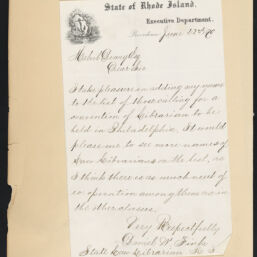 State of Rhode Island.
Executive Department.
Providence June 22nd
Melvil Dewey Esq
Dear Sir
I take pleasure in adding my name
to the list of those calling for a
convention of Librarians to be
held in Philadelphia. It would
please me to see more names of
Law Librarians on the list, as
I think there is as much need of
co-operation among them as in
the other classes.
Very Respectfully
Daniel W
State Law Librarian R. I.